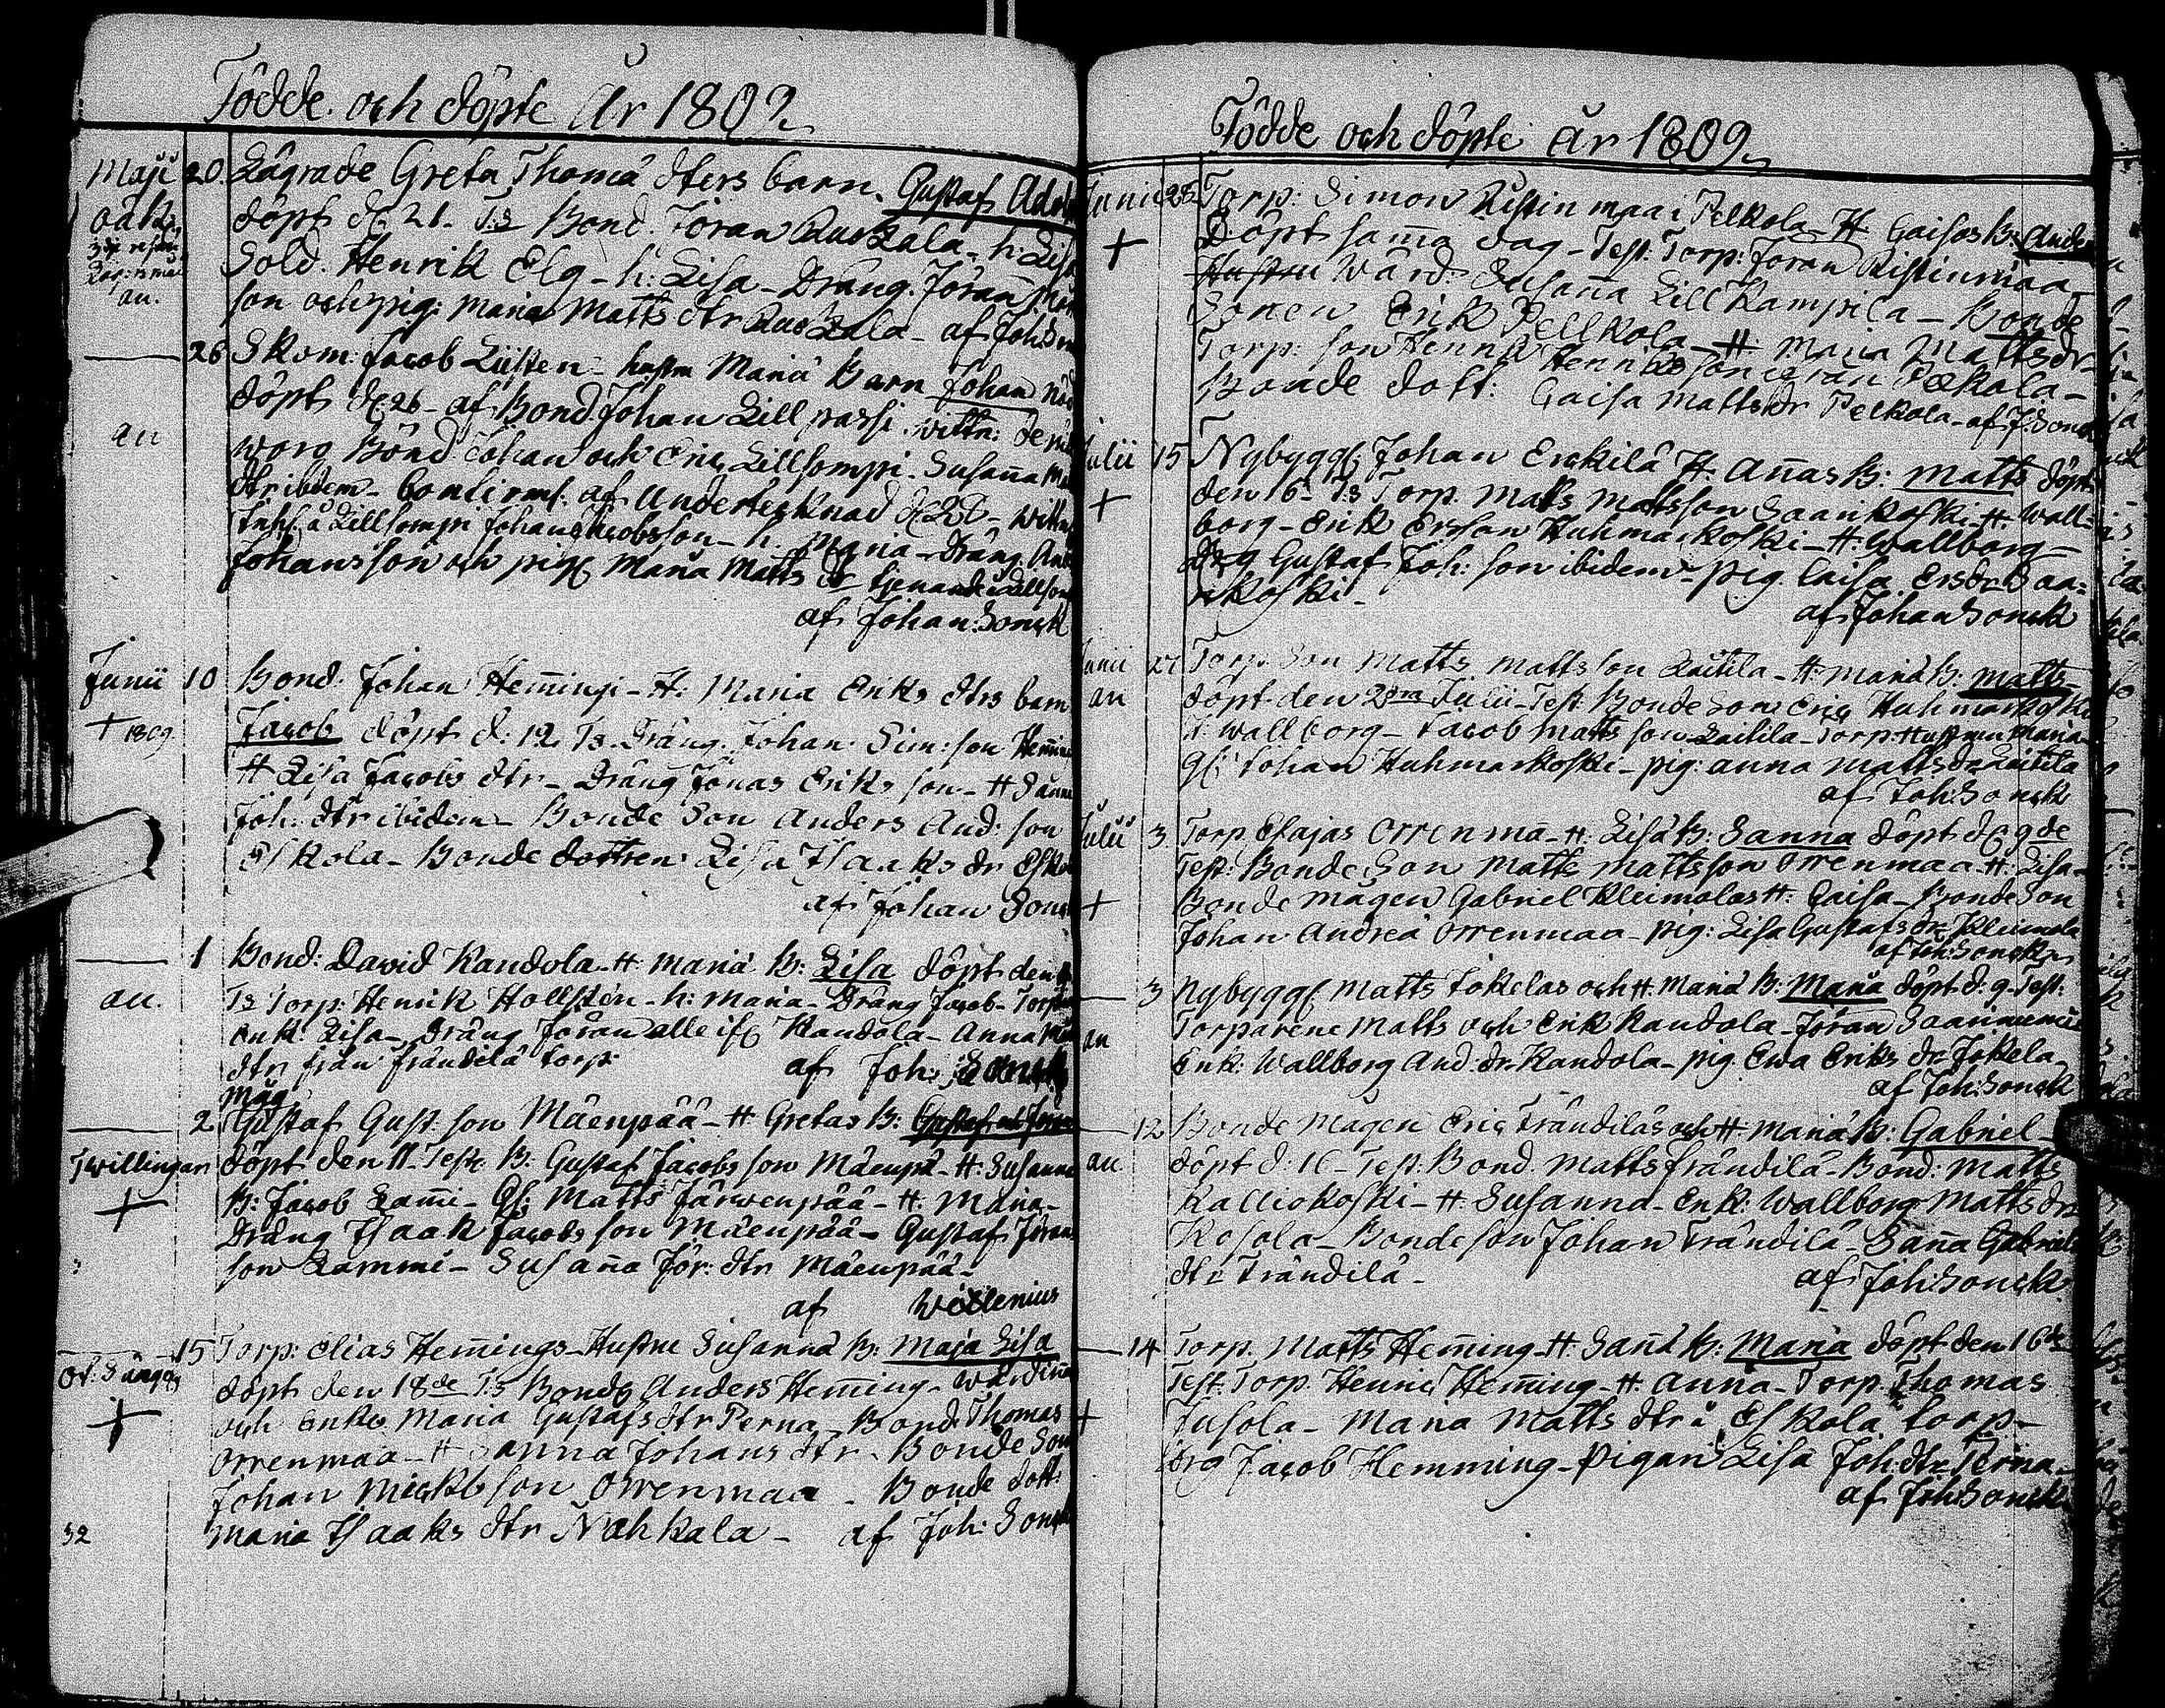 Födde och döpte År 1809
Maji 20. Lägrade Greta Thomæ dters barn. Gustaf Adol
oäkt döpt d. 21. T:s Bond. Jöran Ruskala - h: Lisa
Sold. Henrik Elg - h: Lisa - Dräng. Jöran
an. son och pig: Maria Matts dtr Ruskala - af Joh: Son
26 Skom: Jacob - hustru Mariæ Barn Johan Nöd
döpt d. 26 - af Bond. Johan Lill passi. Vittn:
an woro Bond Johan och Eric Lillsompi. Susanna
dtr ibidem - af Undertecknad d. 28 -
Inhs. å Lillsompi Johan Jacobsson - h. Maria - Dräng
Johansson och pig Maria Matts dr tjenande å Lillsom
af Johan: Sonck
Junii 10 Bond. Johan Hem̄ingi - H: Maria Eriks dtrs barn
+ 1809 Jacob döpt d: 12 T:s Dräng. Johan Sim: son Hem̄in
H Lisa Jacobs dtr - Dräng Jonas Eriks son - H Sanna
Joh: dtr ibidem - Bonde Son Anders And: son
Eskola - Bonde dottren Lisa Isaaks dr Esko
af Johan Sonck
1 Bond: David Kandola - H: Mariæ B: Lisa döpt den
an. T:s Torp: Henrik Hollsten - h: Maria - Dräng Jacob -
Enk: Lisa - Dräng Jöran alle ifr Kandola - Anna
dtr från Frändilä torp. af Joh: Sonck
Måg
2 Gustaf Gust: son Mäenpää - H Gretas B: Gustaf och Jöran
Twillingar döpt den 11. Test: B: Gustaf Jacobs son Mäenpä - H: Susanna
+ B: Jacob Lam̄i - Gl: Matts Järwenpää - H: Maria -
Dräng Isaak Jacobs son Mäenpää - Gustaf Jöran
son Lammi - Susan̄a Jör: dtr Mäenpää -
af Willenius
15 Torp: Elias Hem̄ings - Hustru Susannæ B: Maja Lisa
döpt den 18de T:s Bonde Anders Hem̄ing - Wärdin̄a
+ och Enka Maria Gustafs dtr Perna - Bond Thomas
Orrenmaa - H Sanna Johans dtr - Bonde Son
Johan Mickls son Orrenmaa - Bonde dott:
32 Maria Isaaks dtr Nahkala - af Joh: Sonck
Födde och döpte år 1809
Junii 28 Torp: Simon Ristin maa i Pelkola - H Caisas B: Ander
+ Döpt sam̄a dag - Test. Torp: Jöran Ristinmaa -
Hustru Wärd: Susan̄a Lill Kampila - Bonde
Sonen Erik Pellkola - H: Maria Mattsdr -
Torp: son Henrik Henriks son ifrån Pelkola -
Bonde dott: Caisa Mattsdr Pelkola - af J: Sonck
Julii 15 Nybyggs Johan Erckilä H. An̄as B: Matts döpt
+ den 16 - T:s Torp. Matts Mattsson Saarikoski - H. Wall=
borg - Erik Ersson Huhmarkoski - H: Wallborg -
drg Gustaf Joh: son ibidem - pig. Caisa Ersdr Saa=
rikoski -
af Johan Sonck
Junii 27 Torp: Son Matts Matts son Laitila - H: Mariæ B: Matts -
an döpt den 2dra Julii - Test: Bonde Son Eric Huhmarkoski
H Wallborg - Jacob Matts son Laitila - Torp: Hustru Maria
Johan Huhmarkoski - pig: Anna Mattsdr Laitila
af Joh: Sonck
Julii 3 Torp. Elajas Orrenma - H: Lisæ B: Sanna döpt d. 9de
Test: Bonde Son Matts Mattsson Orrenmaa - H: Lisa -
+ Bonde Mågen Gabriel Kleimolas H: Caisa - Bonde Son
Johan Andreæ Orrenmaa - Pig: Lisa Gustafs dr Kleimola
af Joh: Sonck
3 Nybyggs Matts Jokelas och H: Mariæ B: Maria döpt d. 9. Test:
an Torparene Matts och Erik Kandola - Jöran
Enk: Wallborg And: dr Kandola - pig. Ewa Eriks dr Jokela -
af Joh: Sonck
12 Bonde Mågen Eric Frändiläs och H: Mariæ B: Gabriel -
an. döpt d: 16 - Test: Bond. Matts Frändilä - Bond: Matts
Kalliokoski - H: Susanna - Enk: Wallborg Matts dr
Kosola - Bonde son Johan Frändilä - San̄a Gabriels
dtr Frändilä - af Joh: Sonck
14 Torp. Matts Hem̄ing - H: San̄æ B: Maria döpt den 16de
Test. Torp. Henric Hem̄ing - H: Anna - Torp. Thomas
+ Jusola - Maria Matts dtr i Eskola torp -
drg Jacob Hemming - Pigan Lisa Joh: dtr Perna -
af Joh: Sonck